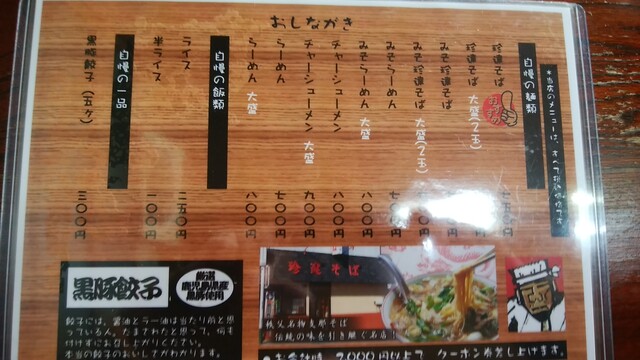 おしながき
*当店のメニューは、すべて
自慢の麺類
珍達そば
珍達そば 大盛(2玉)
みそ珍達そば
みそ珍達そば 大盛(2玉)
みそらーめん 七〇〇円
みそらーめん 大盛 八〇〇円
チャーシューメン 八〇〇円
チャーシューメン 大盛 九〇〇円
らーめん 七〇〇円
らーめん 大盛 八〇〇円
自慢の飯類
ライス 二五〇円
半ライス 一〇〇円
自慢の一品
黒豚餃子(五ヶ) 三〇〇円
黒豚餃子
厳選
鹿児島県産
黒豚使用
餃子には、醤油とラー油は当たり前と思
っている人、だまされたと思って、何も
付けずにお召し上がりください。
本当の餃子のおいしさがわかります。
珍達そば
秩父名物支那そば
伝統の味を引き継ぐ名店!
●お会計時、2000円以上で、クーポン券差し上げます。